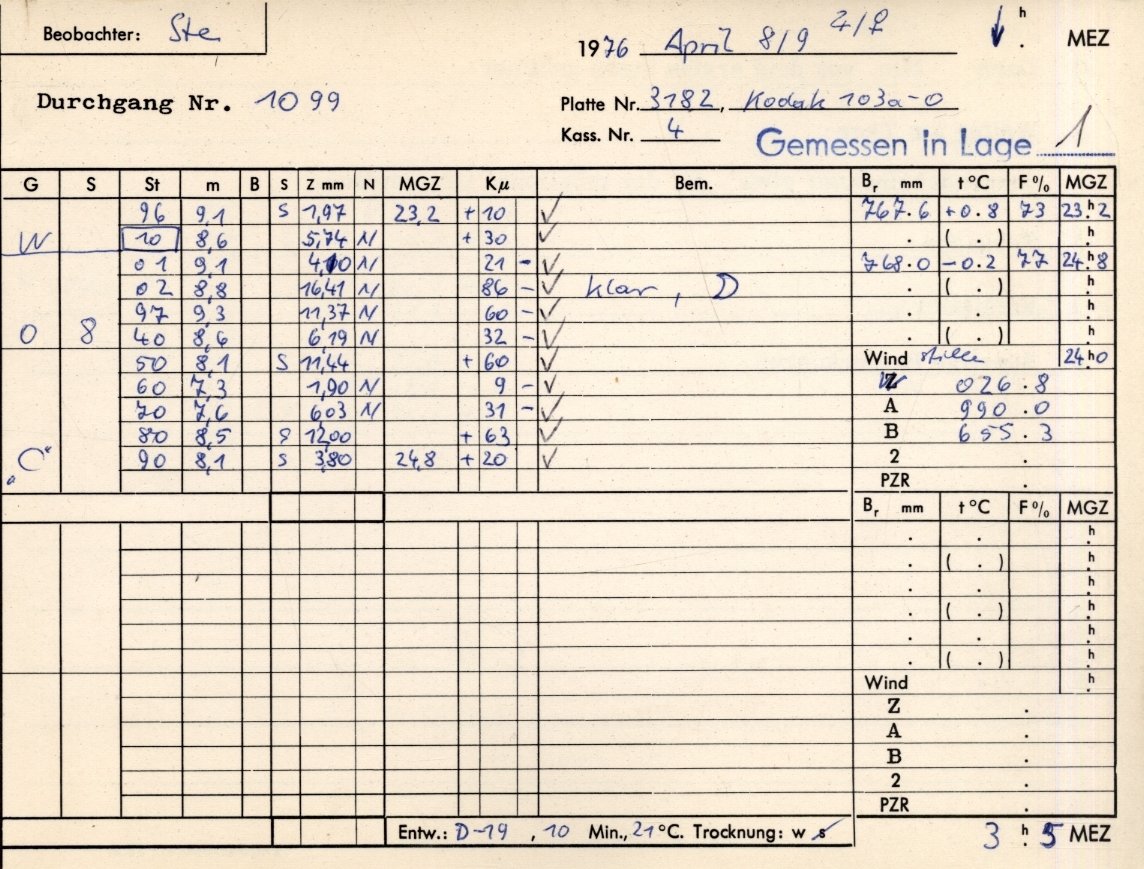 Beobachter: Ste
1976 April 8/9 h . MEZ
Durchgang Nr. 1099
Platte Nr. 3182, Kodak 103a-O
Kass. Nr. 4
Gemessen in Lage 1
G S St m B S Z mm N MGZ Kµ Bem. Br mm t °C F % MGZ
96 9,1 S 1,97 23,2 + 10 ✓ 767.6 +0.8 73 23h2
W 10 8,6 5,74 N + 30 ✓ . ( . ) h
01 9,1 4,10 N 21 - ✓ 768.0 -0.2 77 24h8
02 8,8 16,41 N 86 - ✓ klar, . ( . ) h
97 9,3 11,37 N 60 - ✓ . . h
O 8 40 8,6 6,19 N 32 - ✓ . ( . ) h
50 8,1 S 11,44 + 60 ✓ Wind stille 24h0
60 7,3 1,90 N 9 - ✓ Z 026.8
70 7,6 6,03 N 31 - ✓ A 990.0
80 8,5 S 12,00 + 63 ✓ B 655.3
"C" 90 8,1 S 3,80 24,8 + 20 ✓ 2 .
PZR .
Br mm t °C F % MGZ
. . h
. ( . ) h
. . h
. ( . ) h
. . h
. ( . ) h
Wind h
Z .
A .
B .
2 .
PZR .
Entw.: D-19, 10 Min., 21 °C. Trocknung: w s 3 h 5 MEZ